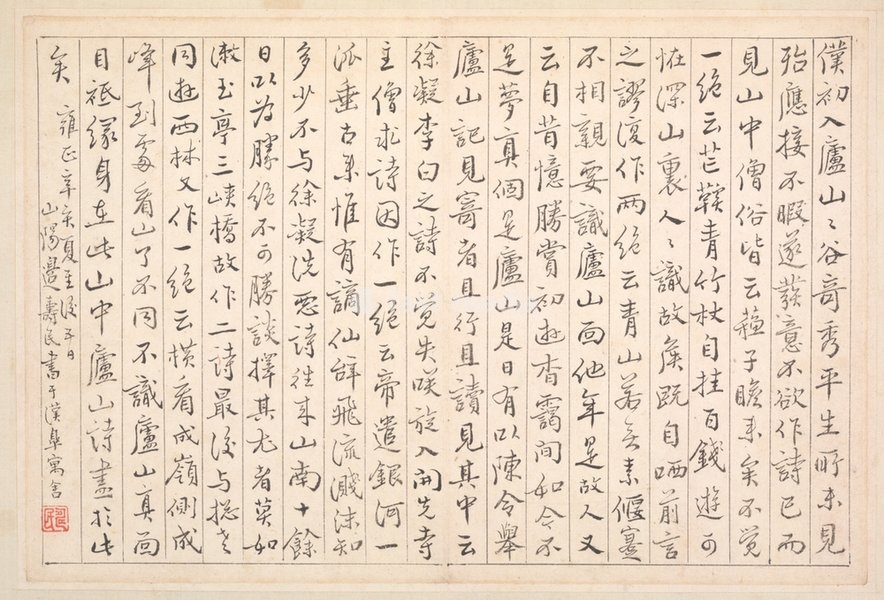 僕初入廬山山谷奇秀平生所未見
殆應接不暇遂發意不欲作詩已而
見山中僧俗皆云蘓子瞻来矣不覚
一絶云芒鞵青竹杖自挂百錢遊可
怪深山裏人人識故矦既自哂前言
之謬復作两絶云青山若無素偃蹇
不相親要識廬山面他年是故人又
云自昔憶勝賞初遊杳靄間如今不
是夢真個是廬山是日有以陳令舉
廬山記見寄者且行且讀見其中云
徐凝李白之詩不覚失咲旋入開先寺
主僧求詩因作一絶云帝遣銀河一
派垂古来惟有謫仙辞飛流濺沫知
多少不与徐凝洗悪詩往来山南十餘
日以為勝絶不可勝談擇其尤者莫如
漱玉亭三峡橋故作二詩最後与摠老
同遊西林又作一絶云横看成嶺側成
峰到處看山了不同不識廬山真面
目祗緣身在此山中廬山詩盡於此
矣
雍正辛亥夏至後五日
山陽邉壽民書于漢臯寓舎